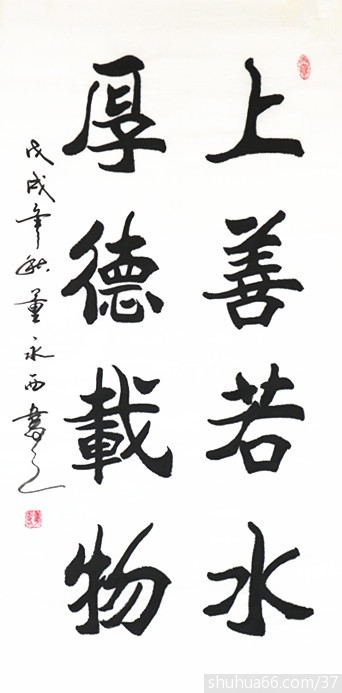 上善若水
厚德載物
戊戌年秋董永西書之
shuhua66.com/37